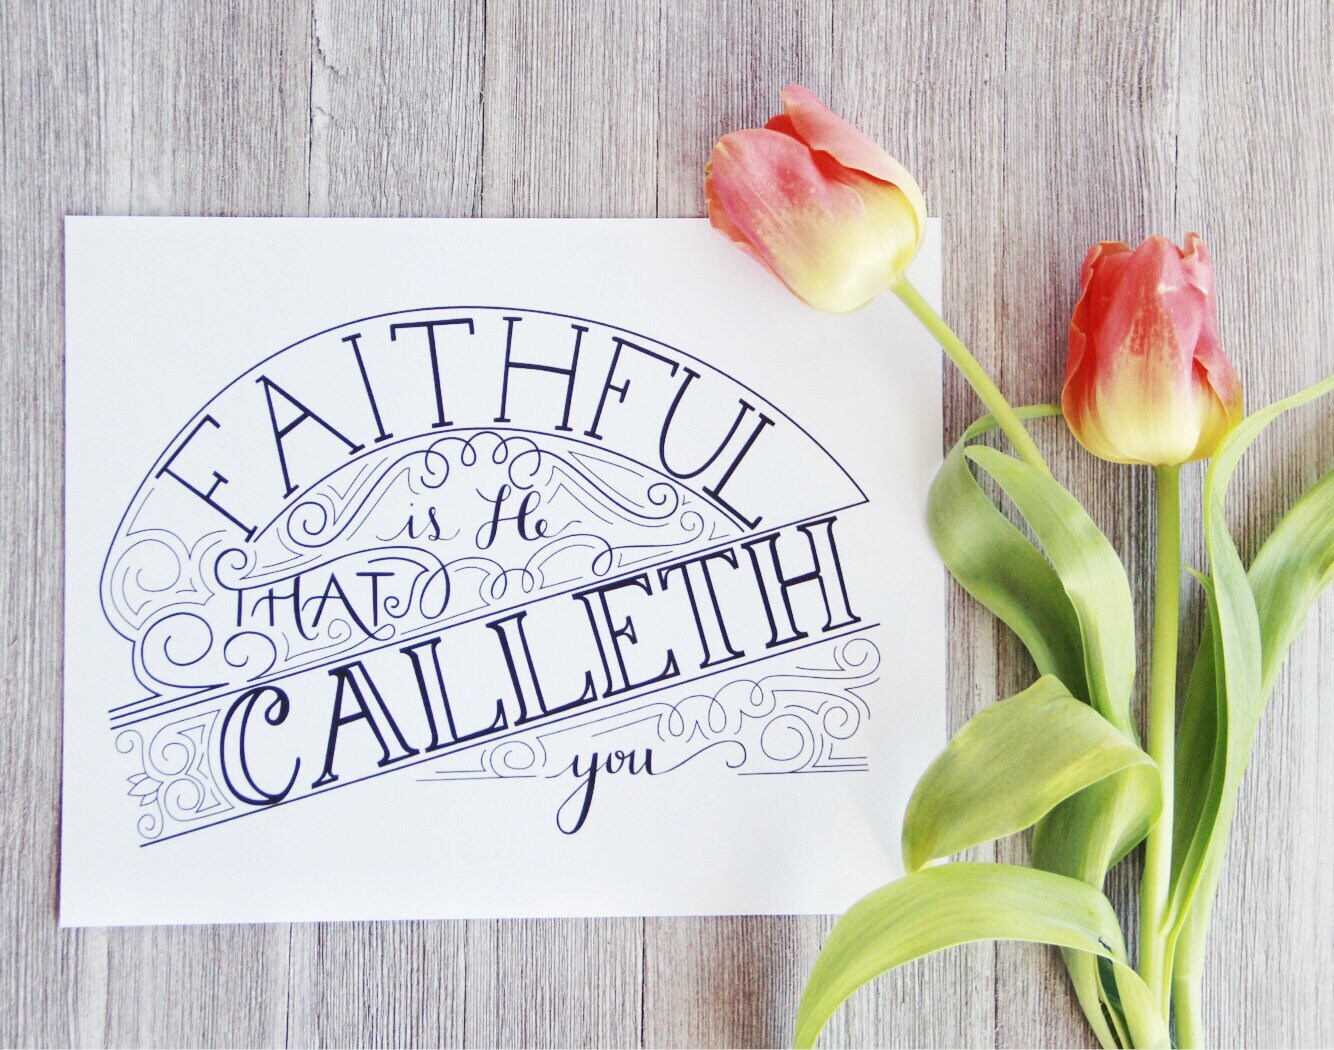 FAITHFUL
is He
THAT
CALLETH
you